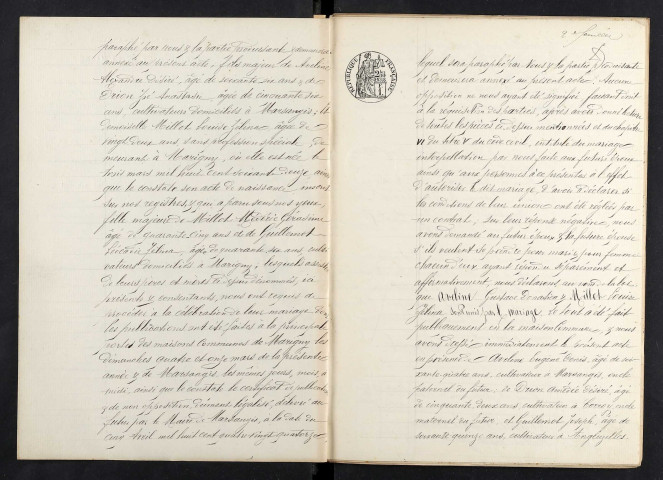 paraphé par nous & la partie
annexé au présent acte, fils majeur de Aveline
Désiré, âgé de soixante six ans & de
Drion âgée de cinquante six
ans, cultivateurs domiciliés à Marsangis; Et
demoiselle Millot Louise Zelma âgée de
vingt deux ans, sans profession
demeurant à Marigny, où elle est née le
trois mars mil huit cent soixante douze, ainsi
que le constate son acte de naissance inscrit
sur nos registres & que a parn nous
fille majeure de Millot
âgé de quarante cinq ans et de Guillemot
Zelma, âgée de quarante six ans, culti-
vateurs domiciliés à Marigny, lesquels assistés
de leurs pères et mères ici
présents & consentants, nous ont requis de
procéder à la célébration de leur mariage dont
les publications ont été faites à la principale
portes des maisons communes de Marigny les
dimanches quatre et onze mars de la présente
année, & de Marsangis, les mêmes jours, mois, à
midi, ainsi que le constate le certificat de publication
& de non opposition dûment légalisé, délivré au
futur par le Maire de Marsangis, à la date du
cinq Avril mil huit cent quatre vingt quatorze
RÉPUBLIQUE FRANÇAISE
lequel sera paraphé par nous & la partie
et demeurera annexé au présent acte. Aucune
opposition ne nous ayant été signifiée faisant droit
à la réquisition des parties, après avoir donné lecture
de toutes les pièces ci-dessus mentionnées et du chapitre
VI du titre V du code civil, intitulé du mariage
interpellation par nous faite aux futurs époux
ainsi qu'aux personnes ici présentes à l'effet
d'autoriser le dit mariage, d'avoir à déclarer si
les conditions de leur union ont été réglées par
un contrat, sur leur réponse négative, nous
avons demandé au futur époux & à la future épouse
s'ils veulent se prendre pour mari & pour femme
chacun d'eux ayant répondu séparément et
affirmativement, nous déclarons au nom de la loi
que Aveline Gustave & Millot Louise
Zelma sont unis par le mariage. Le tout a été fait
publiquement en la maison commune, & nous
avons dressé immédiatement le présent acte
en présence de Aveline Eugène âgé de soi-
xante quatre ans, cultivateur à Marsangis, oncle
paternel du futur, de Drion Désiré, âgé
de cinquante deux ans, cultivateur à oncle
maternel du futur, et Guillemot Joseph, âgé de
soixante quinze ans, cultivateur à Angluzelles.